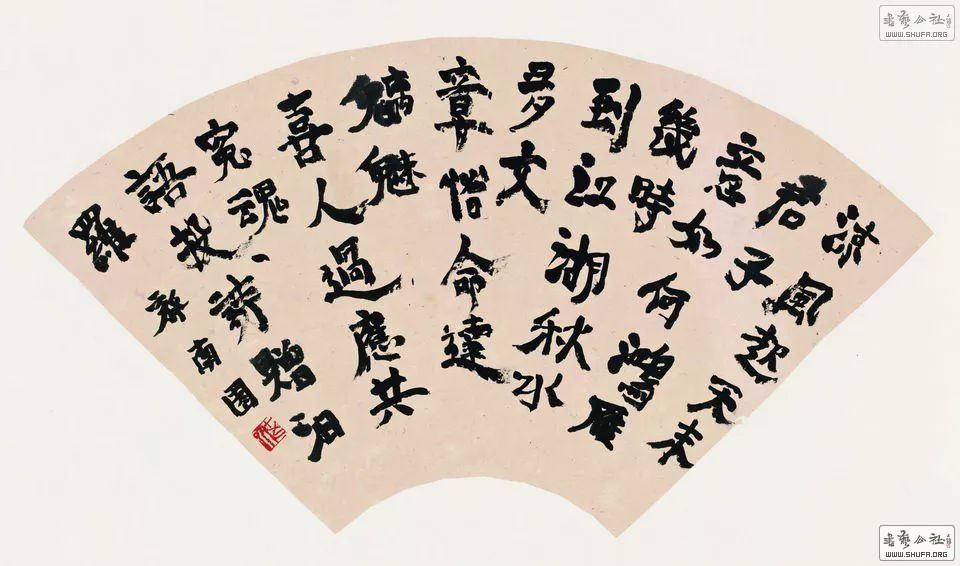 涼風起天末
君子
意如何鴻雁
幾時
到江湖秋水
多文
章憎命達
魑魅
喜人過應共
冤魂
語投詩贈汨
羅
南園
書藝公社
WWW.SHUFA.ORG
書藝公社
WWW.SHUFA.ORG